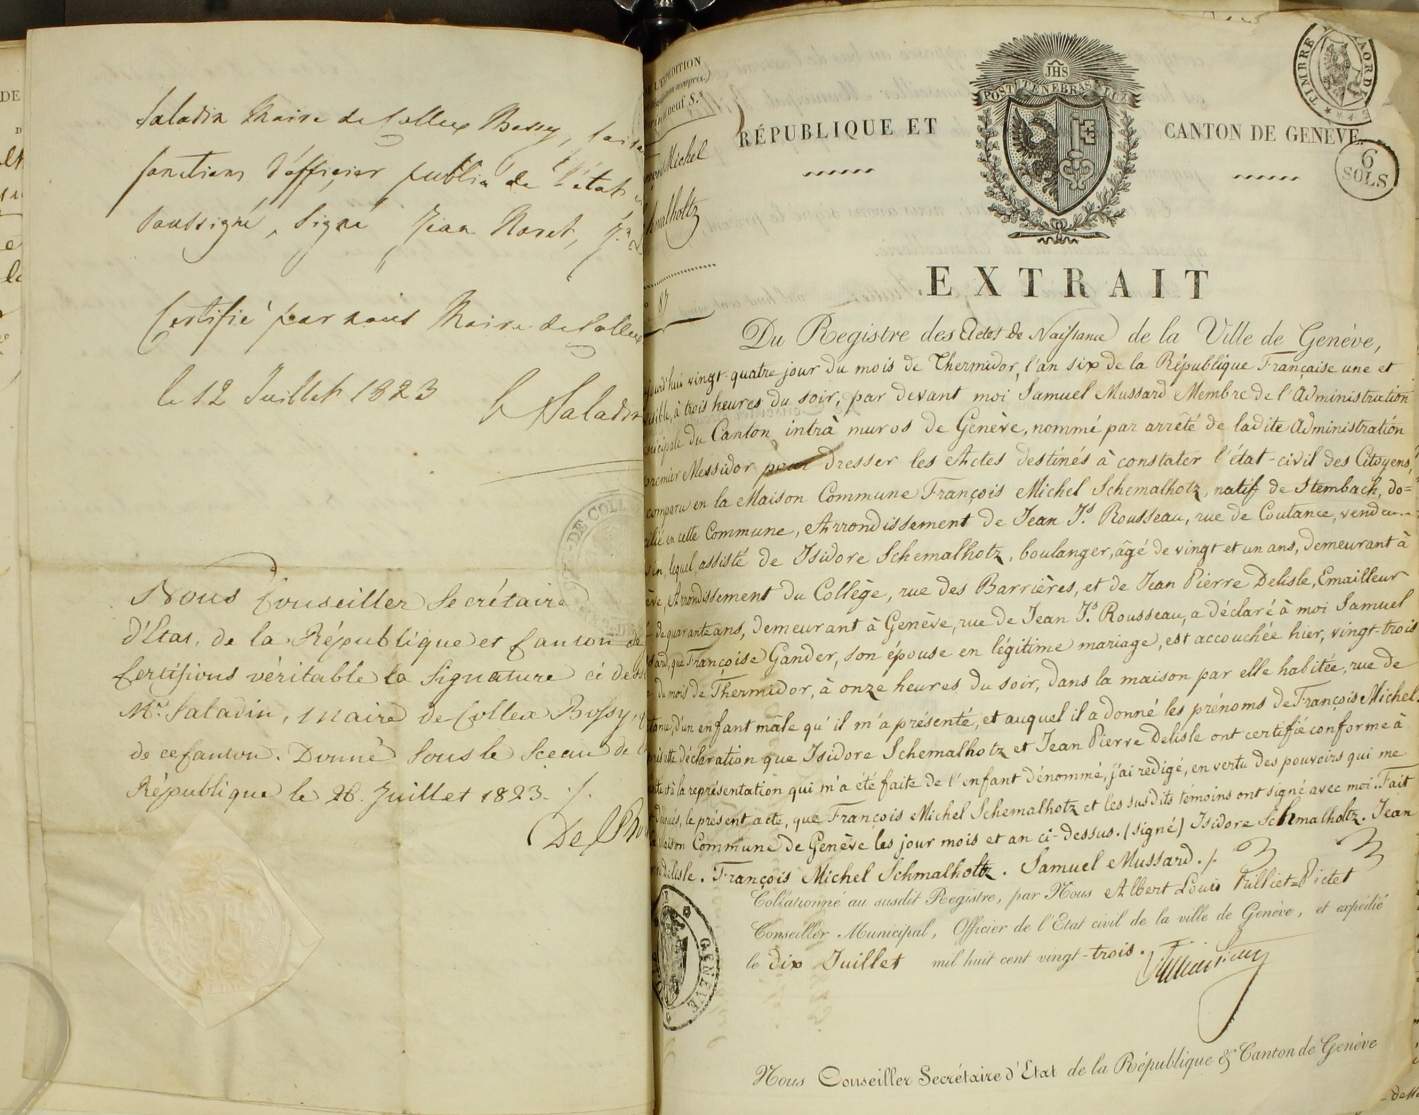 Saladin Maire de Collex Bossy,
fonctions d'officier public de l'état
soussigné, Signé Jean
Certifié par nous Maire de Collex
le 12 Juillet 1823 Saladin
Nous Conseiller Secrétaire
d'Etat, de la République et Canton de
Certifions véritable la Signature ci dessus
Mr. Saladin, Maire de Collex Bossy,
de ce Canton. Donné sous le Sceau de
République le 26. Juillet 1823.
L'EXPEDITION
Michel
87
POST TENEBRAS LUX
JHS
TIMBRE
6
SOLS
RÉPUBLIQUE ET CANTON DE GENÈVE.
EXTRAIT
Du Registre des Actes de Naissance de la Ville de Genève,
vingt-quatre jour du mois de Thermidor, l'an six de la République Française une et
à trois heures du soir, par devant moi Samuel Mussard Membre de l'Administration
du Canton intrà muros de Genève, nommé par arrêté de ladite Administration
Messidor pour dresser les Actes destinés à constater l'état-civil des Citoyens,
comparu en la Maison Commune François Michel Schemalhotz, natif de Stembach, do=
en cette Commune, Arrondissement de Jean Js. Rousseau, rue de Coutance,
lequel assisté de Isidore Schemalhotz, boulanger, âgé de vingt et un ans, demeurant à
Arrondissement du Collège, rue des Barrières, et de Jean Pierre Delisle, Emailleur
de quarante ans, demeurant à Genève, rue de Jean Js. Rousseau, a déclaré à moi Samuel
que Françoise Gander, son épouse en légitime mariage, est accouchée hier, vingt-trois
du mois de Thermidor, à onze heures du soir, dans la maison par elle habitée, rue de
d'un enfant mâle qu'il m'a présenté, et auquel il a donné les prénoms de François Michel.
déclaration que Isidore Schemalhotz et Jean Pierre Delisle ont certifié conforme à
la représentation qui m'a été faite de l'enfant dénommé, j'ai rédigé, en vertu des pouvoirs qui me
le présent acte, que François Michel Schemalhotz et les susdits témoins ont signé avec moi. Fait
Maison Commune de Genève les jour mois et an ci-dessus. (signé) Isidore Schmalholtz. Jean
Delisle. François Michel Schmalholtz. Samuel Mussard ./.
Collationné au susdit Registre, par Nous Albert Louis Pictet
Conseiller Municipal, Officier de l'Etat civil de la ville de Genève, et expédié
le dix Juillet mil huit cent vingt-trois.
GENÈVE
Nous Conseiller Secrétaire d'Etat de la République & Canton de Genève